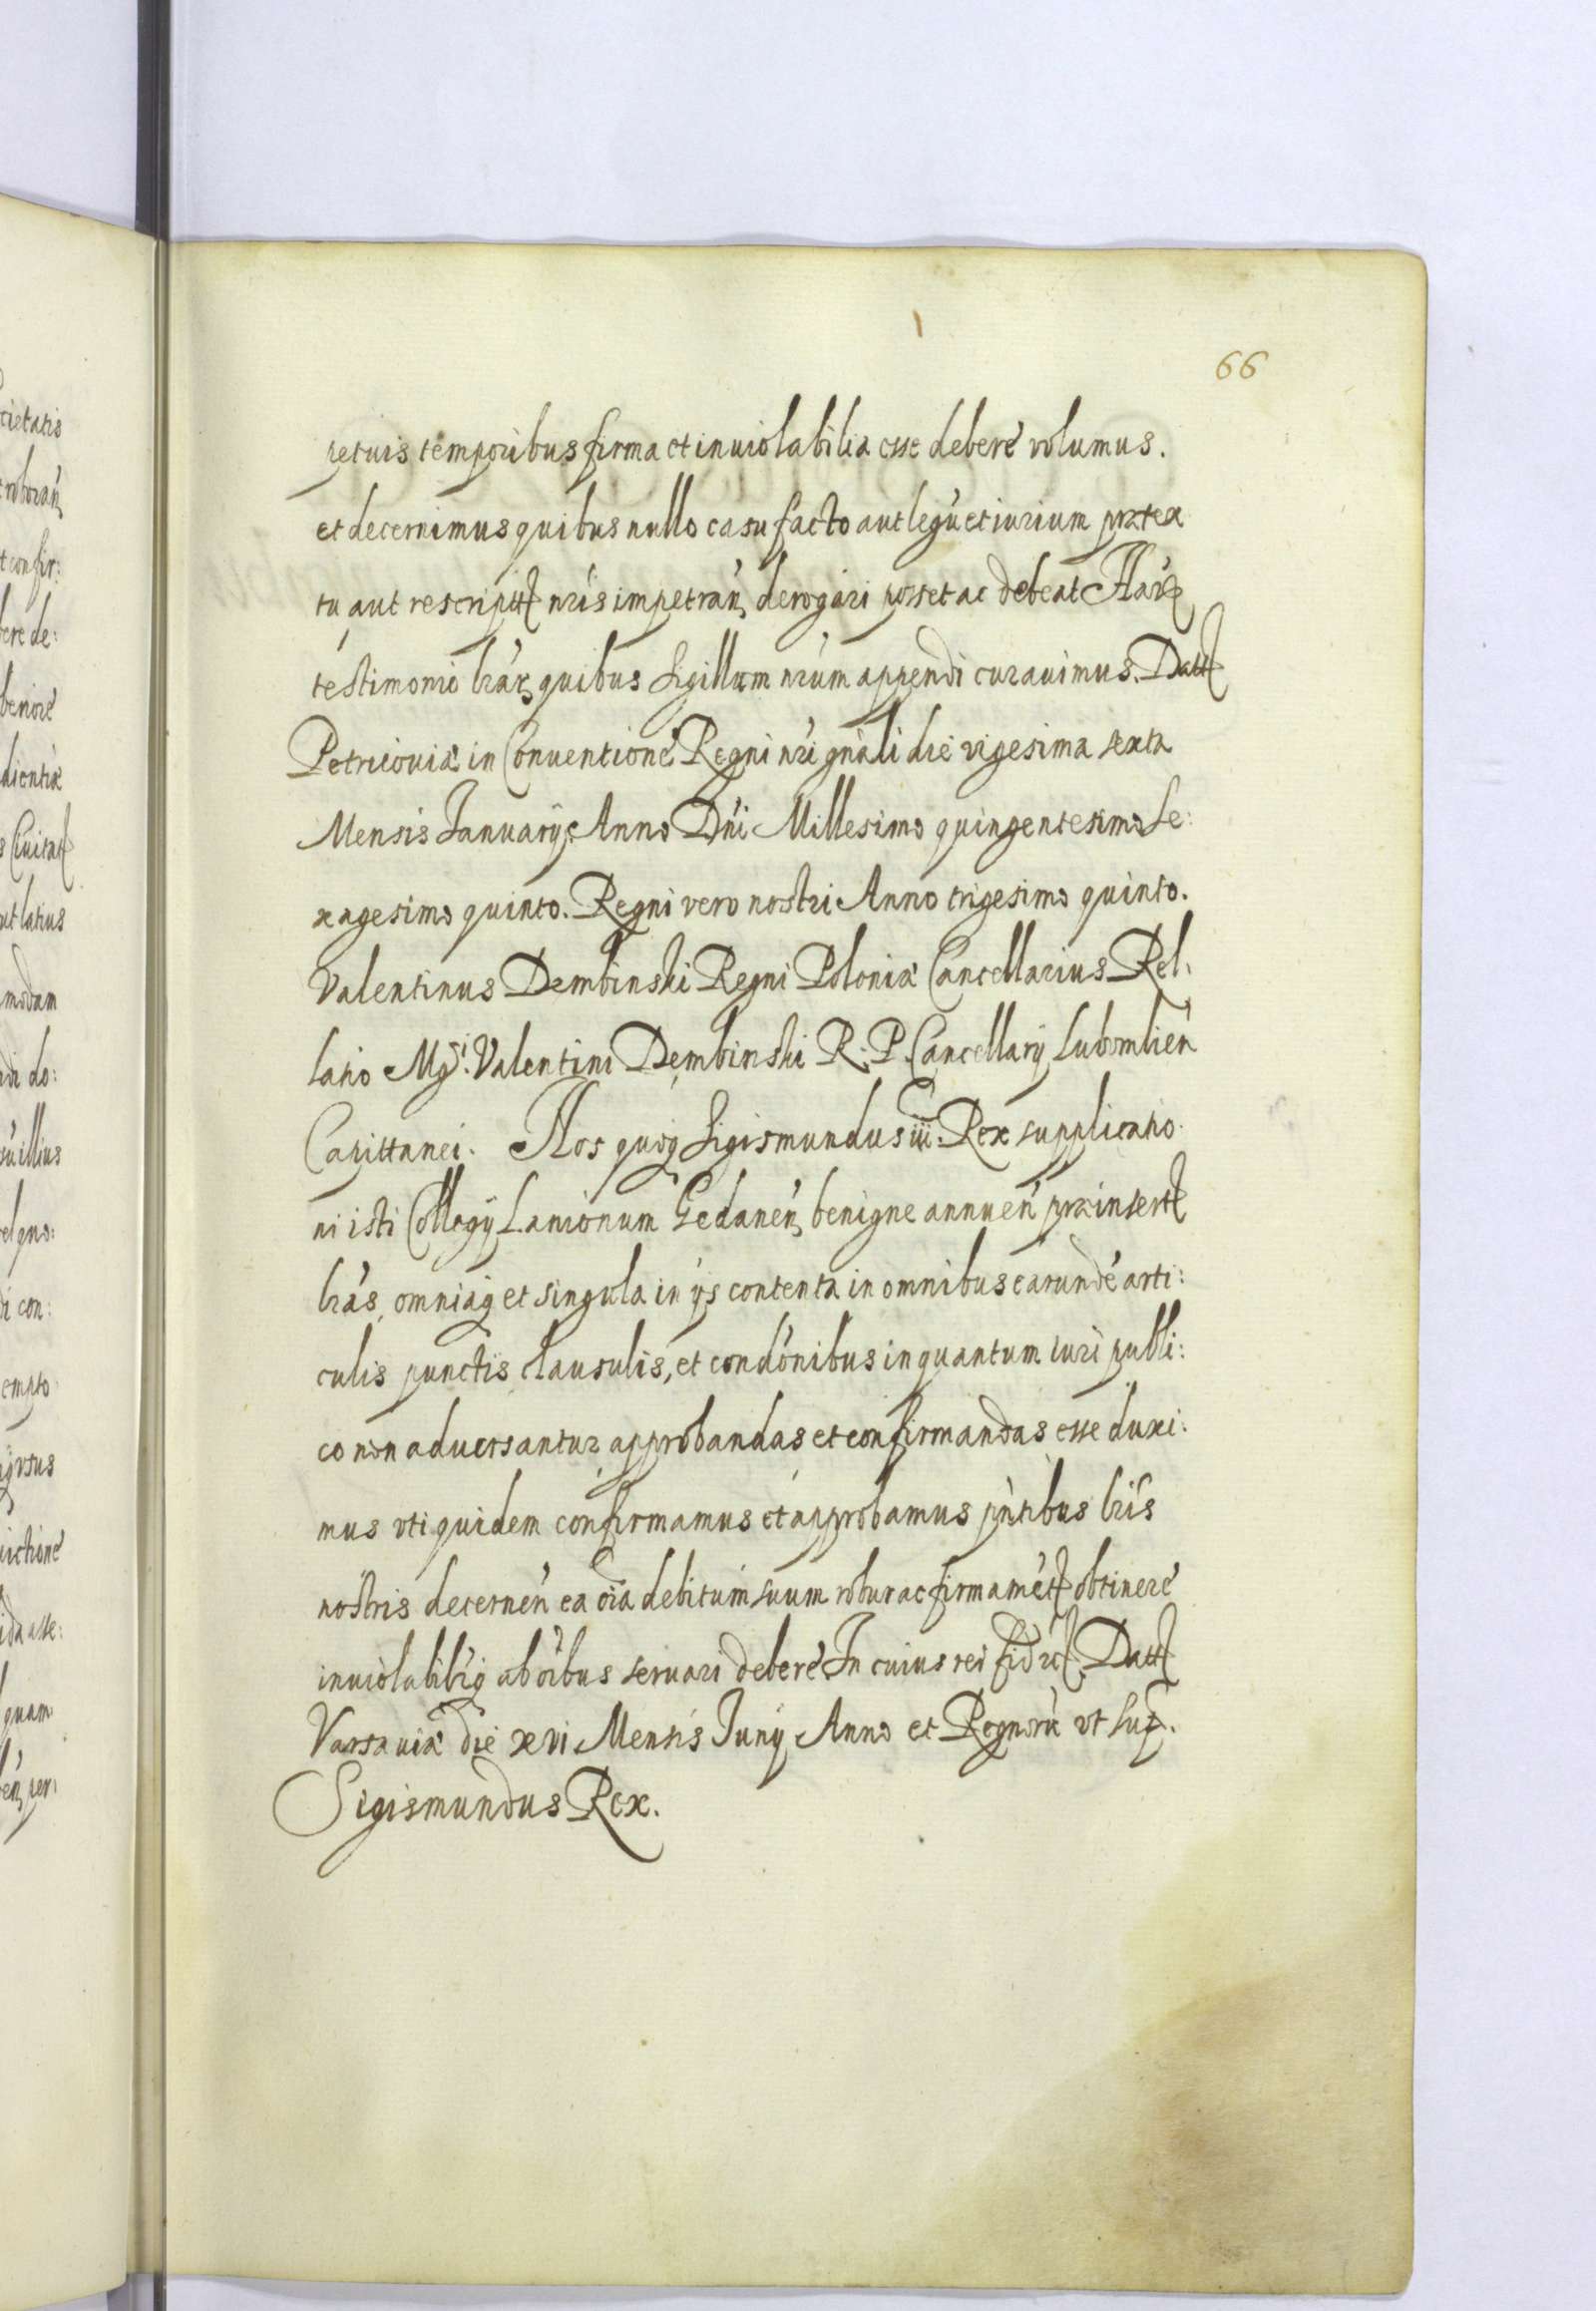 66
petuis temporibus firma et inuiolabilia esse debere volumus.
et decernimus quibus nullo casu facto aut legū et iurium prætex
tu aut rescriptt nr̄is impetrań derogari posset ac debeat Har
testimonio lr̄ar quibus Sigillum nr̄um appendi curauimus. Datt
Petricouiæ in Conuentione Regni nr̄i gn̄ali die vigesima sexta
Mensis Januarÿ Anno Dn̄i Millesimo quingentesimo Se:
xagesimo quinto. Regni vero nostri Anno trigesimo quinto.
Valentinus Dembinski Regni Poloniæ Cancellarius Rel:
latio Mgci. Valentini Dembinski R. P. Cancellarÿ Lubomlień
Capittanei. Nos quoq Sigismundus iii. Rex supplicatio
ni isti Collegÿ Lanionum Gedaneń benigne annueń præinsertt
lr̄as, omniaq et singula in ÿs contenta in omnibus earundē arti:
culis punctis clausulis, et condōnibus in quantum iuri publi:
co non aduersantur approbandas et confirmandas esse duxi:
mus vti quidem confirmamus et approbamus pn̄tibus lr̄is
nostris decerneń ea oīa debitum suum robur ac firmamētt obtinere
inuiolabilr̄q ab oībus seruari debere In cuius rei fid Datt
Varsauiæ die xvi Mensis Junÿ Anno et Regnorū vt sup.
Sigismundus Rex.
cietatis
roborań
confir:
bere de:
beriore
dientiæ
Ciuitatt
ut latius
modum
do:
illius
con:
empto
ictione
quam
per